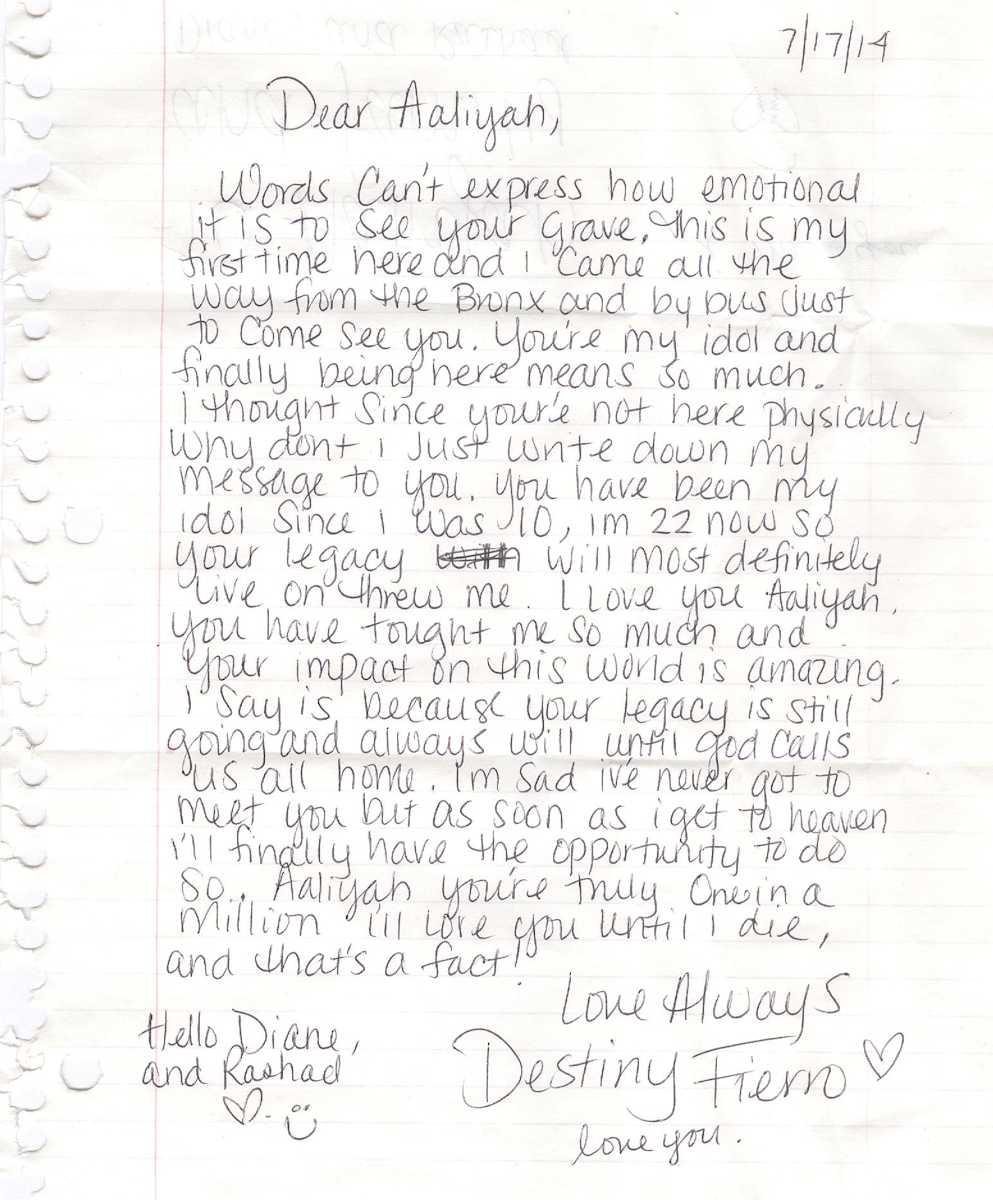 7/17/14
Dear Aaliyah,
Words Can't express how emotional
it is to see your Grave. this is my
first time here and I came all the
way from the Bronx and by bus just
to Come see you. You're my idol and
finally being here means so much.
I thought since your'e not here physically
why dont i just write down my
message to you. you have been my
idol since I was 10, im 22 now so
your legacy will most definitely
live on threw me. I love you Aaliyah.
you have tought me so much and
your impact on this world is amazing.
I say is because your legacy is still
going and always will until god calls
us all home. I'm sad iv'e never got to
meet you but as soon as i get to heaven
i'll finally have the opportunity to do
so.. Aaliyah you're truly One in a
Million I'll love you until I die,
and that's a fact!
Love Always
Destiny Fierro
love you.
Hello Diane,
and Rashad